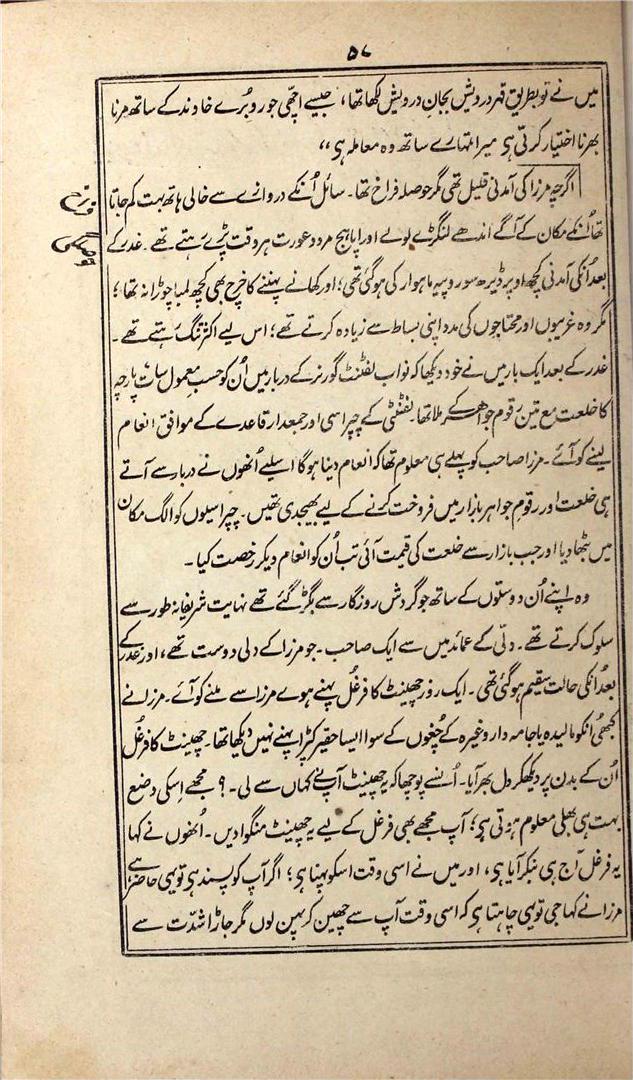 ۵۷
میں نے تو بطریق قہر درویش بجان درویش لکھا تھا، جیسے اچھی جورو بُرے خاوند کے ساتھ مرنا
بھرنا اختیار کرتی ہی میرا تمہارے ساتھ وہ معاملہ ہی،،
اگرچہ مرزا کی آمدنی قلیل تھی مگر حوصلہ فراخ تھا۔ سائل اُنکے دروازے سے خالی ہاتھ بہت کم جاتا
فراخ
تھا اُنکے مکان کے آگے اندھے لنگڑے لولے اور اپاہج مرد و عورت ہر وقت پڑے رہتے تھے۔ غدر کے
حوصلگی
بعد اُنکی آمدنی کچھ اوپر ڈیڑھ سو روپیہ ماہوار کی ہوگئی تھی؛ اور کھانے پہننے کا خرچ بھی کچھ لمبا چوڑا نہ تھا؛
مگر وہ غریبوں اور محتاجوں کی مدد اپنی بساط سے زیادہ کرتے تھے؛ اس لیے اکثر تنگ رہتے تھے۔
غدر کے بعد ایک بار میں نے خود دیکھا کہ نواب لفٹنٹ گورنر کے دربار میں اُن کو حسب معمول سات پارچہ
کا خلعت مع تین رقوم جواہر کے ملا تھا۔ لفٹنٹی کے چپراسی اور جمعدار قاعدے کے موافق انعام
لینے کو آئے۔ مرزا صاحب کو پہلے ہی معلوم تھا کہ انعام دینا ہوگا اسلیے اُنھوں نے دربار سے آتے
ہی خلعت اور رقوم جواہر بازار میں فروخت کرنے کے لیے بھیجدی تھیں۔ چپراسیوں کو الگ مکان
میں بٹھا دیا اور جب بازار سے خلعت کی قیمت آئی تب اُن کو انعام دیکر رخصت کیا۔
وہ اپنے اُن دوستوں کے ساتھ جو گردش روزگار سے بگڑ گئے تھے نہایت شریفانہ طور سے
سلوک کرتے تھے۔ دلّی کے عمائد میں سے ایک صاحب۔ جو مرزا کے دلی دوست تھے، اور غدر کے
بعد اُنکی حالت سقیم ہو گئی تھی۔ ایک روز چھینٹ کا فرغل پہنے ہوے مرزا سے ملنے کو آئے۔ مرزا نے
کبھی اُنکو مالیدہ یا جامہ وار وغیرہ کے چُغوں کے سوا ایسا حقیر کپڑا پہنے نہیں دیکھا تھا۔ چھینٹ کا فرغل
اُن کے بدن پر دیکھکر دل بھر آیا۔ اُنسے پوچھا کہ یہ چھینٹ آپنے کہاں سے لی۔؟ مجھے اِسکی وضع
بہت ہی بھلی معلوم ہوتی ہی؛ آپ مجھے بھی فرغل کے لیے یہ چھینٹ منگوا دیں۔ اُنھوں نے کہا
یہ فرغل آج ہی بنکر آیا ہی، اور میں نے اسی وقت اسکو پہنا ہی؛ اگر آپ کو پسند ہی تو یہی حاضر ہے
مرزا نے کہا جی تو یہی چاہتا ہی کہ اسی وقت آپ سے چھین کر پہن لوں مگر جاڑا شدّت سے